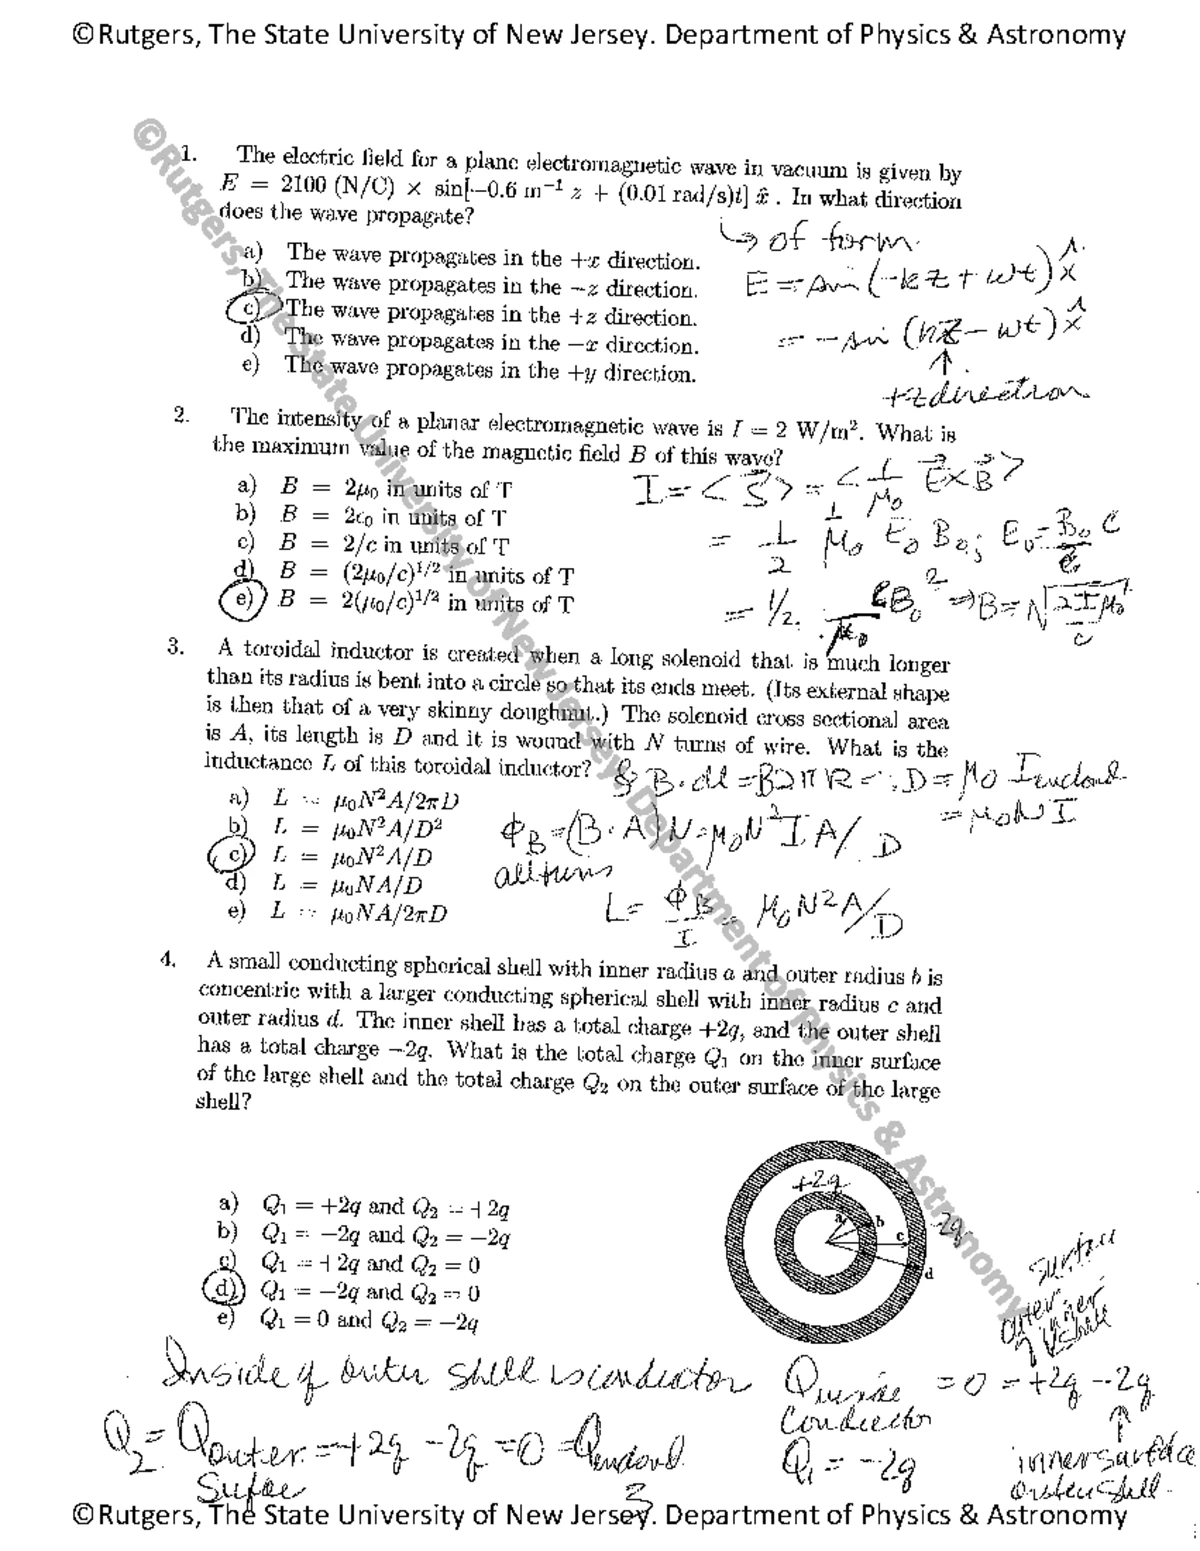 ©Rutgers, The State University of New Jersey. Department of Physics & Astronomy
1. The electric field for a plane electromagnetic wave in vacuum is given by
E = 2100 (N/C) × sin[−0.6 m⁻¹ z + (0.01 rad/s)t] x̂ . In what direction
does the wave propagate?
↳ of form
a) The wave propagates in the +x direction.
b) The wave propagates in the −z direction.
c) The wave propagates in the +z direction.
d) The wave propagates in the −x direction.
e) The wave propagates in the +y direction.
E = sin(−kz + ωt) x̂
= −sin (kz − ωt) x̂
↑
+z direction
2. The intensity of a planar electromagnetic wave is I = 2 W/m². What is
the maximum value of the magnetic field B of this wave?
a) B = 2μ₀ in units of T
b) B = 2ε₀ in units of T
c) B = 2/c in units of T
d) B = (2μ₀/c)^1/2 in units of T
e) B = 2(μ₀/c)^1/2 in units of T
I = <S⃗> = <1/μ₀ E⃗×B⃗>
= 1/2 1/μ₀ E₀ B₀; E₀ = B₀ c
= 1/2 . cB₀²/μ₀ ⇒ B = √2Iμ₀/c
3. A toroidal inductor is created when a long solenoid that is much longer
than its radius is bent into a circle so that its ends meet. (Its external shape
is then that of a very skinny doughnut.) The solenoid cross sectional area
is A, its length is D and it is wound with N turns of wire. What is the
inductance L of this toroidal inductor?
∮ B·dl = B2πR = D = μ₀ I enclosed
= μ₀NI
a) L = μ₀N²A/2πD
b) L = μ₀N²A/D²
c) L = μ₀N²A/D
d) L = μ₀NA/D
e) L = μ₀NA/2πD
ϕ_B = (B·A)N = μ₀N²IA/D
all turns
L = ϕ_B/I = μ₀N²A/D
4. A small conducting spherical shell with inner radius a and outer radius b is
concentric with a larger conducting spherical shell with inner radius c and
outer radius d. The inner shell has a total charge +2q, and the outer shell
has a total charge −2q. What is the total charge Q₁ on the inner surface
of the large shell and the total charge Q₂ on the outer surface of the large
shell?
a) Q₁ = +2q and Q₂ = +2q
b) Q₁ = −2q and Q₂ = −2q
c) Q₁ = +2q and Q₂ = 0
d) Q₁ = −2q and Q₂ = 0
e) Q₁ = 0 and Q₂ = −2q
+2q
a
b
c
d
-2q
surface
outer inner
Inside of outer shell is conductor Q inside = 0 = +2q −2q
conductor
↑
Q₁ = −2q
inner surface
outer shell
Q₂ = Q outer = +2q −2q = 0 = Q enclosed
surface
3
©Rutgers, The State University of New Jersey. Department of Physics & Astronomy
©Rutgers, The State University of New Jersey. Department of Physics & Astronomy